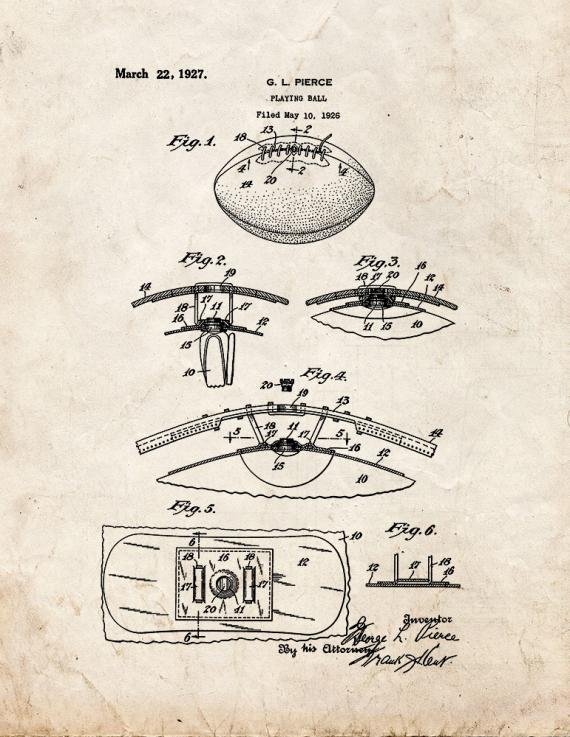 March 22, 1927.
G. L. PIERCE
PLAYING BALL
Filed May 10, 1926
Fig. 1.
18 13 2
4 4
14 20 2
Fig. 2.
14 19
18 17 11 17
16 12
15
10
Fig. 3.
18 17 20 16 12 14
11 15 10
Fig. 4.
20 19 13
18 11 14
5 17 17 5
16
15 12
10
Fig. 5.
6 10
18 16 18 12
17 17
20 11
6
Fig. 6.
12 17 18
16
Inventor
George L. Pierce
By his Attorney